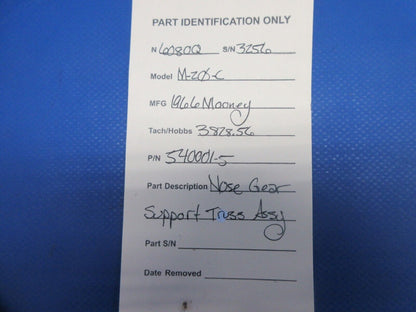 PART IDENTIFICATION ONLY
N 6080Q S/N 3256
Model M-20-C
MFG 1966 Mooney
Tach/Hobbs 3828.56
P/N 540001-5
Part Description Nose Gear
Support Truss Assy
Part S/N
Date Removed